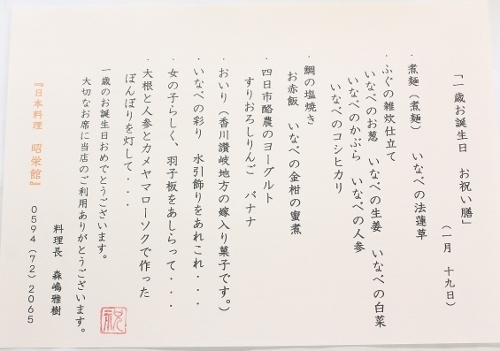 「一歳お誕生日　お祝い膳」
（一月　十九日）
・煮麺（煮麺）　いなべの法蓮草
・ふぐの雑炊仕立て
いなべのお葱　いなべの生姜　いなべの白菜
いなべのかぶら　いなべの人参
いなべのコシヒカリ
・鯛の塩焼き
お赤飯　いなべの金柑の蜜煮
・四日市酪農のヨーグルト
すりおろしりんご　バナナ
・おいり（香川讃岐地方の嫁入り菓子です。）
・いなべの彩り　水引飾りをあれこれ・・・
・女の子らしく、羽子板をあしらって・・・
・大根と人参とカメヤマローソクで作った
ぼんぼりを灯して・・・
一歳のお誕生日おめでとうございます。
大切なお席に当店のご利用ありがとうございます。
料理長　森嶋雅樹
『日本料理　昭栄館』　0594（72）2065